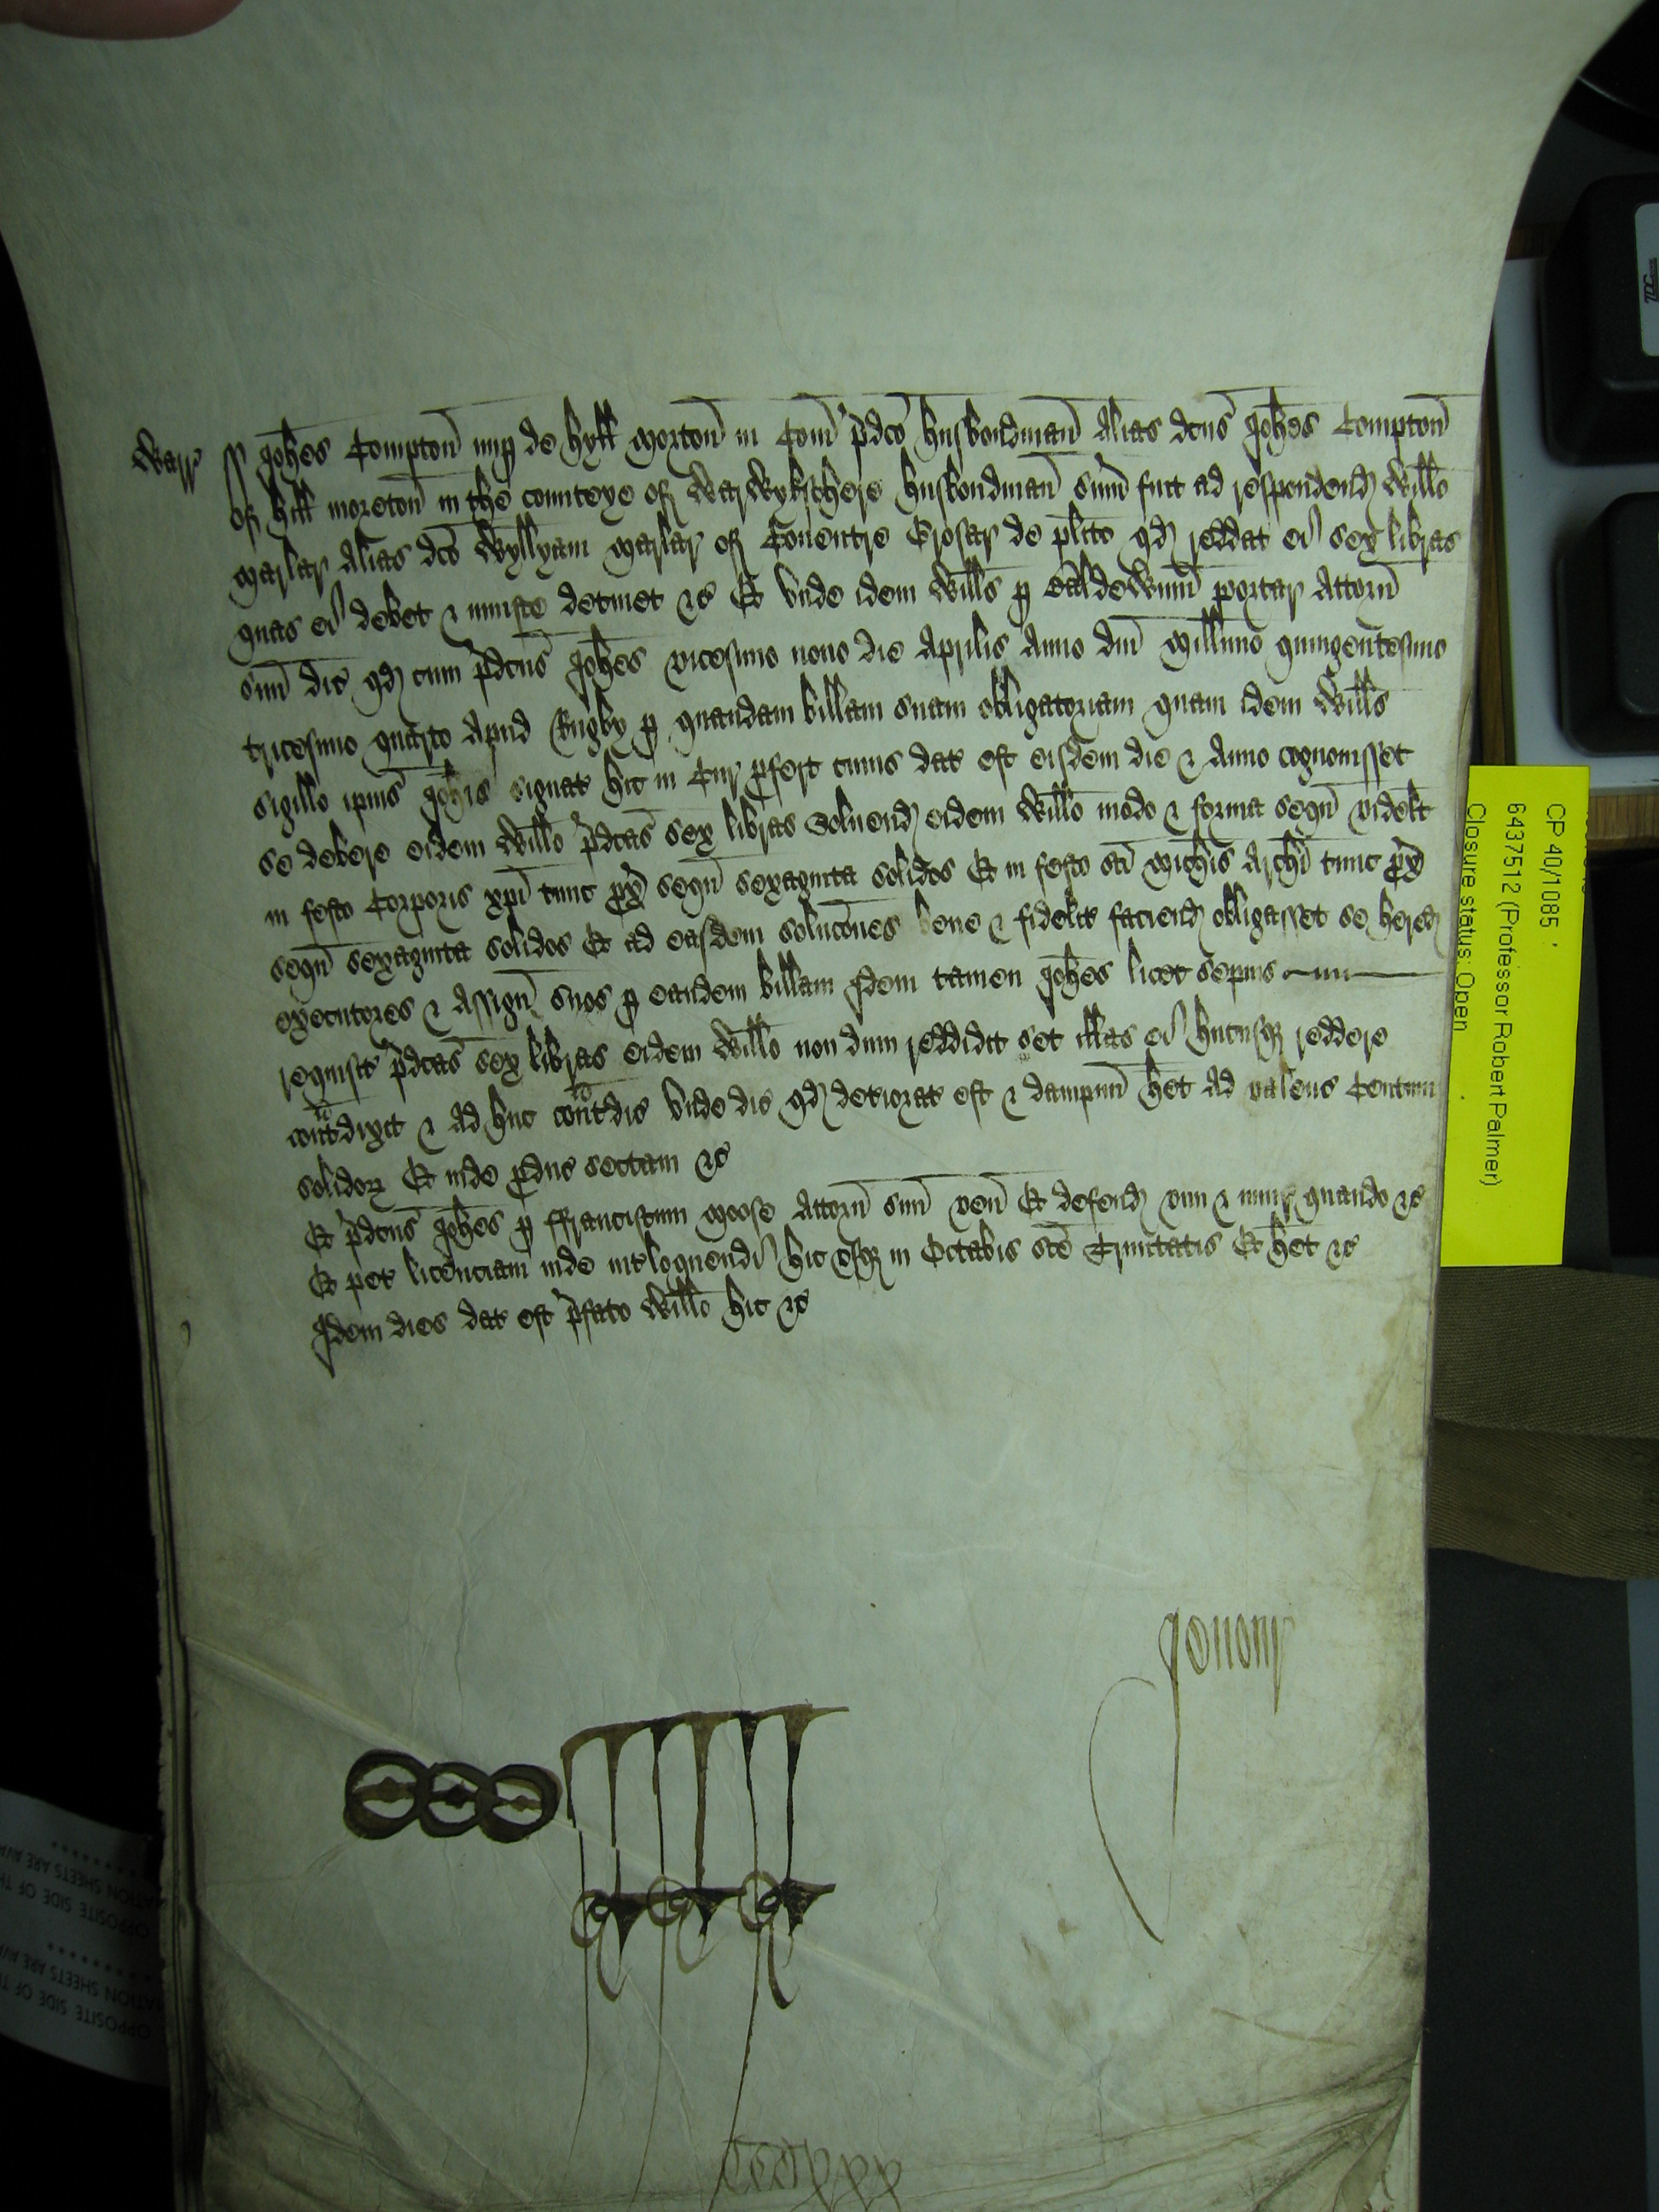 Warr ss Johes Compton nup de Hyll Morton in Com pdco husbondman alias dcus Johes Compton
of hill moreton in the counteye of Warwykschere husbondman sum fuit ad respondend Willo
Marlar alias dco Wyllyam Marlar of Couentre Grosar de plito qd reddat ei sex libras
quas ei debet & iniuste detinet &c Et unde idem Wills p Baldewinu portar Attorn
suu dic qd cum pdcus Johes vicesimo nono die Aprilis Anno dni Millimo quingentesimo
tricesimo quarto apud Rugby p quandam billam suam obligatoriam quam idem Wills
sigillo ipius Johis signat hic in Cur pfert cuius dat est eisdem die & Anno cognouisset
se debere eidem Willo pdcas sex libras Soluend eidem Willo modo & forma sequn videlt
in festo Corporis xpi tunc px sequn sexaginta solidos Et in festo sci Michis Archi tunc px
sequn sexaginta solidos Et ad easdem solucoes bene & fidelit faciend obligasset se hered
executores & Assign suos p eandem billam Idem tamen Johes licet sepius
requisit pdcas sex libras eidem Willo non dum reddidit set illas ei hucusqz reddere
contdixit & ad huc contdic unde dic qd deteriorat est & dampnu het ad valenc Centum
solidoz Et inde pduc sectam &c
Et pdcus Johes p ffranciscum Moose Attorn suu ven Et defend vim & iniur quando &c
Et pet licenciam inde intloquendi hic usqz in Octabis sce Trinitatis Et het &c
Idem dies dat est pfato Willo hic &c
Jenour
CP 40/1085
6437512 (Professor Robert Palmer)
Closure status: Open
OPPOSITE SIDE OF TH
MATION SHEETS ARE AVAI
OPPOSITE SIDE OF T
MATION SHEETS ARE AVA